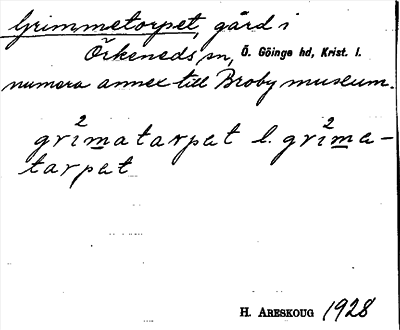 Grimmetorpet, gård i
Örkeneds sn, Ö. Göinge hd, Krist. l.
numera annex till Broby museum.
gri²matarpat l. gri²ma-
tarpat
H. ARESKOUG 1928